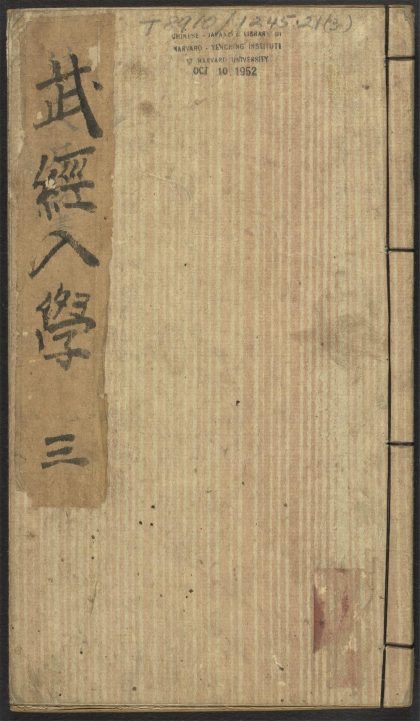 T 8910/1245.21(3)
CHINESE - JAPANESE LIBRARY OF
HARVARD - YENCHING INSTITUTE
AT HARVARD UNIVERSITY
OCT 10 1952
武經入學 三